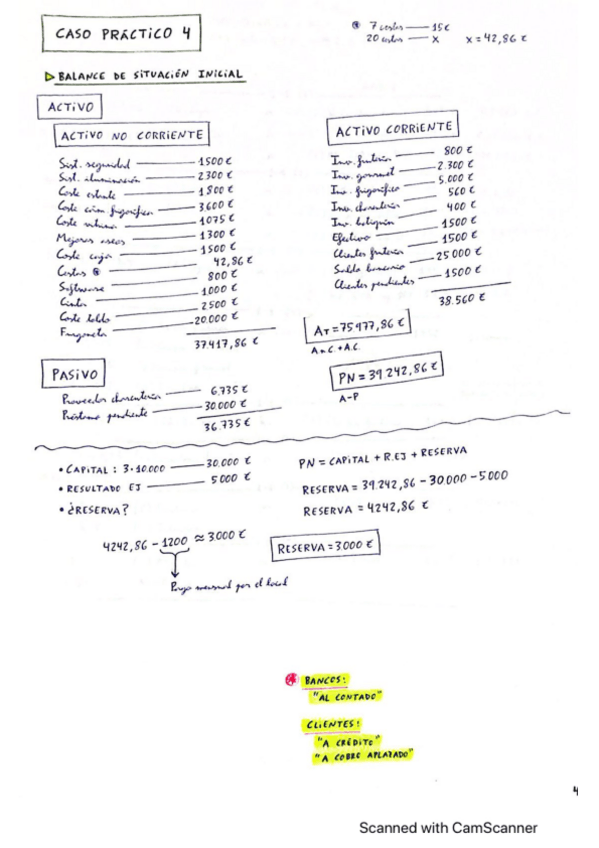 CASO PRÁCTICO 4
⊛ 7 cestos — 15€
20 cestos — x x = 42,86 €
▷ BALANCE DE SITUACIÓN INICIAL
ACTIVO
ACTIVO NO CORRIENTE
Sist. seguridad — 1500 €
Sist. iluminación — 2300 €
Coste estante — 1800 €
Coste cám. frigorífica — 3600 €
Coste vitrina — 1075 €
Mejoras aseos — 1300 €
Coste caja — 1500 €
Cestas ⊛ 42,86 €
Software — 800 €
Cinta — 1000 €
Coste toldo — 2500 €
Furgoneta — 20.000 €
37.417,86 €
ACTIVO CORRIENTE
Inv. frutería — 800 €
Inv. gourmet — 2.300 €
Inv. frigorífico — 5.000 €
Inv. charcutería — 560 €
Inv. botiquín — 400 €
Efectivo — 1500 €
Clientes frutería — 1500 €
Saldo bancario — 25 000 €
Clientes pendientes — 1500 €
38.560 €
AT = 75977,86 €
A.n.C + A.C.
PN = 39 242,86 €
A-P
PASIVO
Proveedor charcutería — 6.735 €
Préstamo pendiente — 30.000 €
36.735 €
• CAPITAL : 3·10.000 — 30.000 €
• RESULTADO EJ — 5000 €
• ¿RESERVA?
PN = CAPITAL + R.EJ + RESERVA
RESERVA = 39.242,86 - 30 000 - 5 000
RESERVA = 4242,86 €
4242,86 - 1200 ≈ 3000 €
RESERVA = 3000 €
Pago mensual por el local
⊛ BANCOS:
"AL CONTADO"
CLIENTES:
"A CRÉDITO"
"A COBRO APLAZADO"
4
Scanned with CamScanner